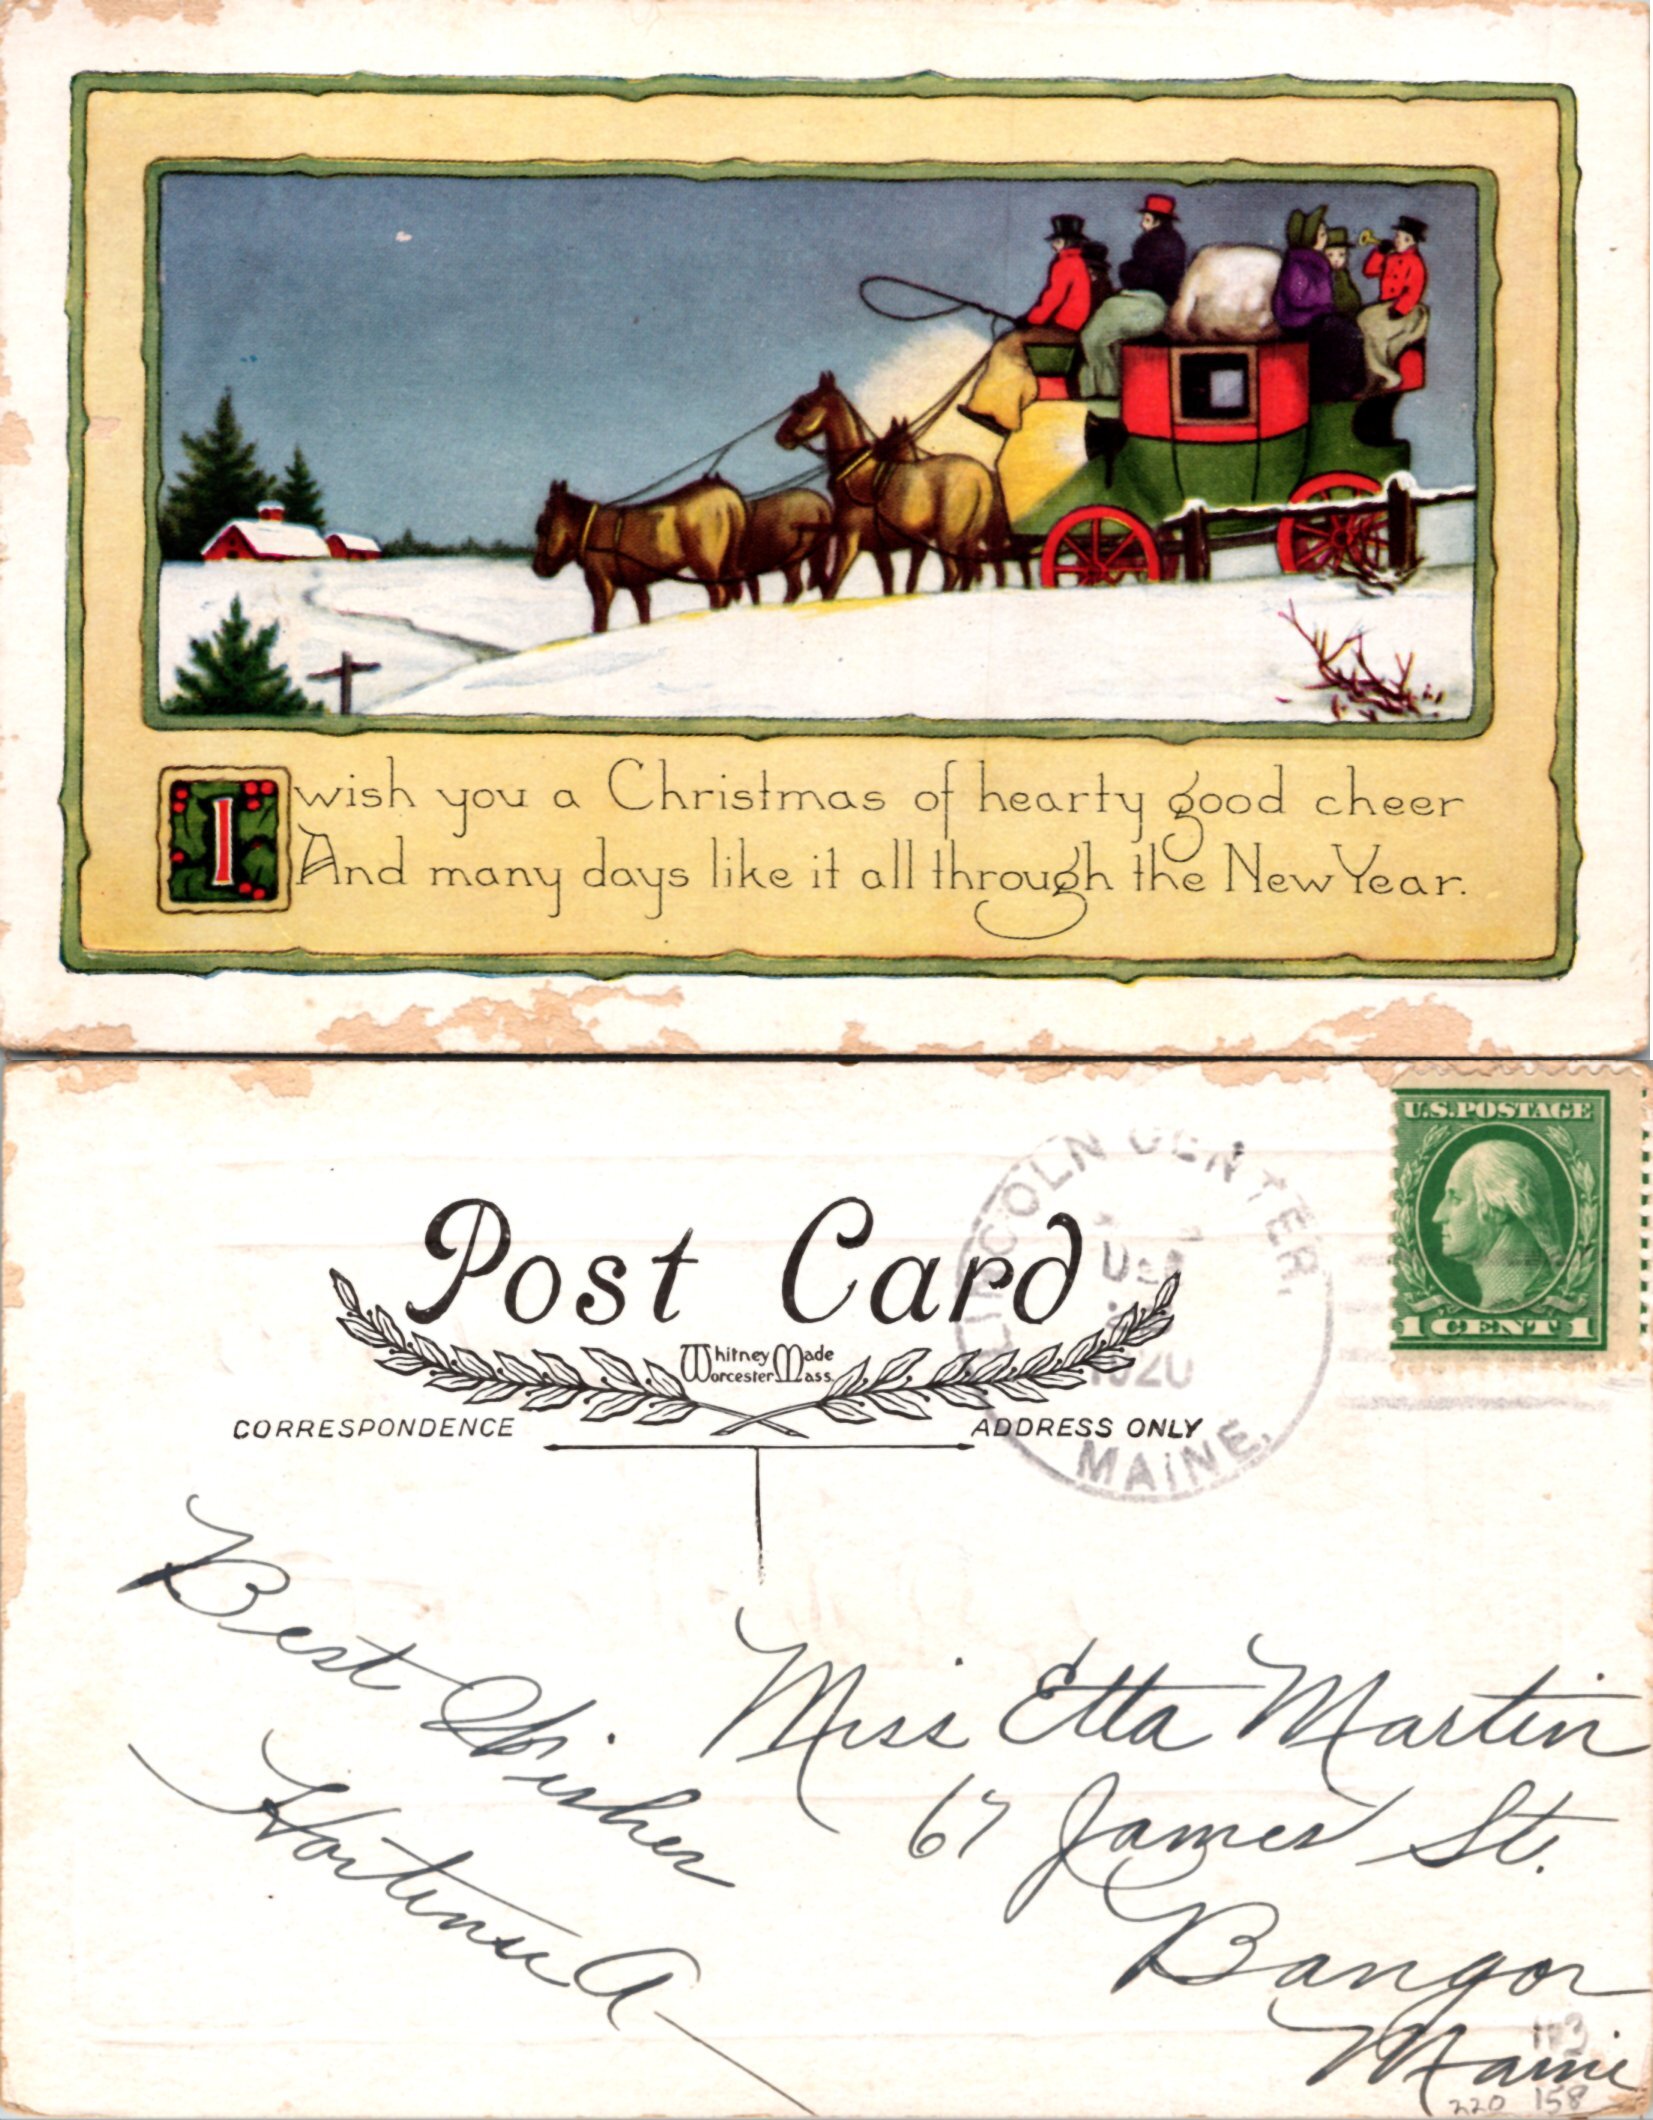 I wish you a Christmas of hearty good cheer
And many days like it all through the New Year.
U.S. POSTAGE
1 CENT 1
LINCOLN CENTER,
DEC
1920
MAINE.
Post Card
Whitney Made
Worcester Mass.
CORRESPONDENCE
ADDRESS ONLY
Best Wishes
Hortense A
Miss Etta Martin
67 James St.
Bangor
Maine
113
220 158